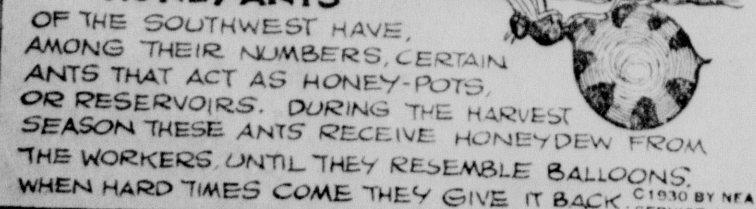 OF THE SOUTHWEST HAVE,
AMONG THEIR NUMBERS, CERTAIN
ANTS THAT ACT AS HONEY-POTS,
OR RESERVOIRS. DURING THE HARVEST
SEASON THESE ANTS RECEIVE HONEYDEW FROM
THE WORKERS, UNTIL THEY RESEMBLE BALLOONS.
WHEN HARD TIMES COME THEY GIVE IT BACK.
©1930 BY NEA